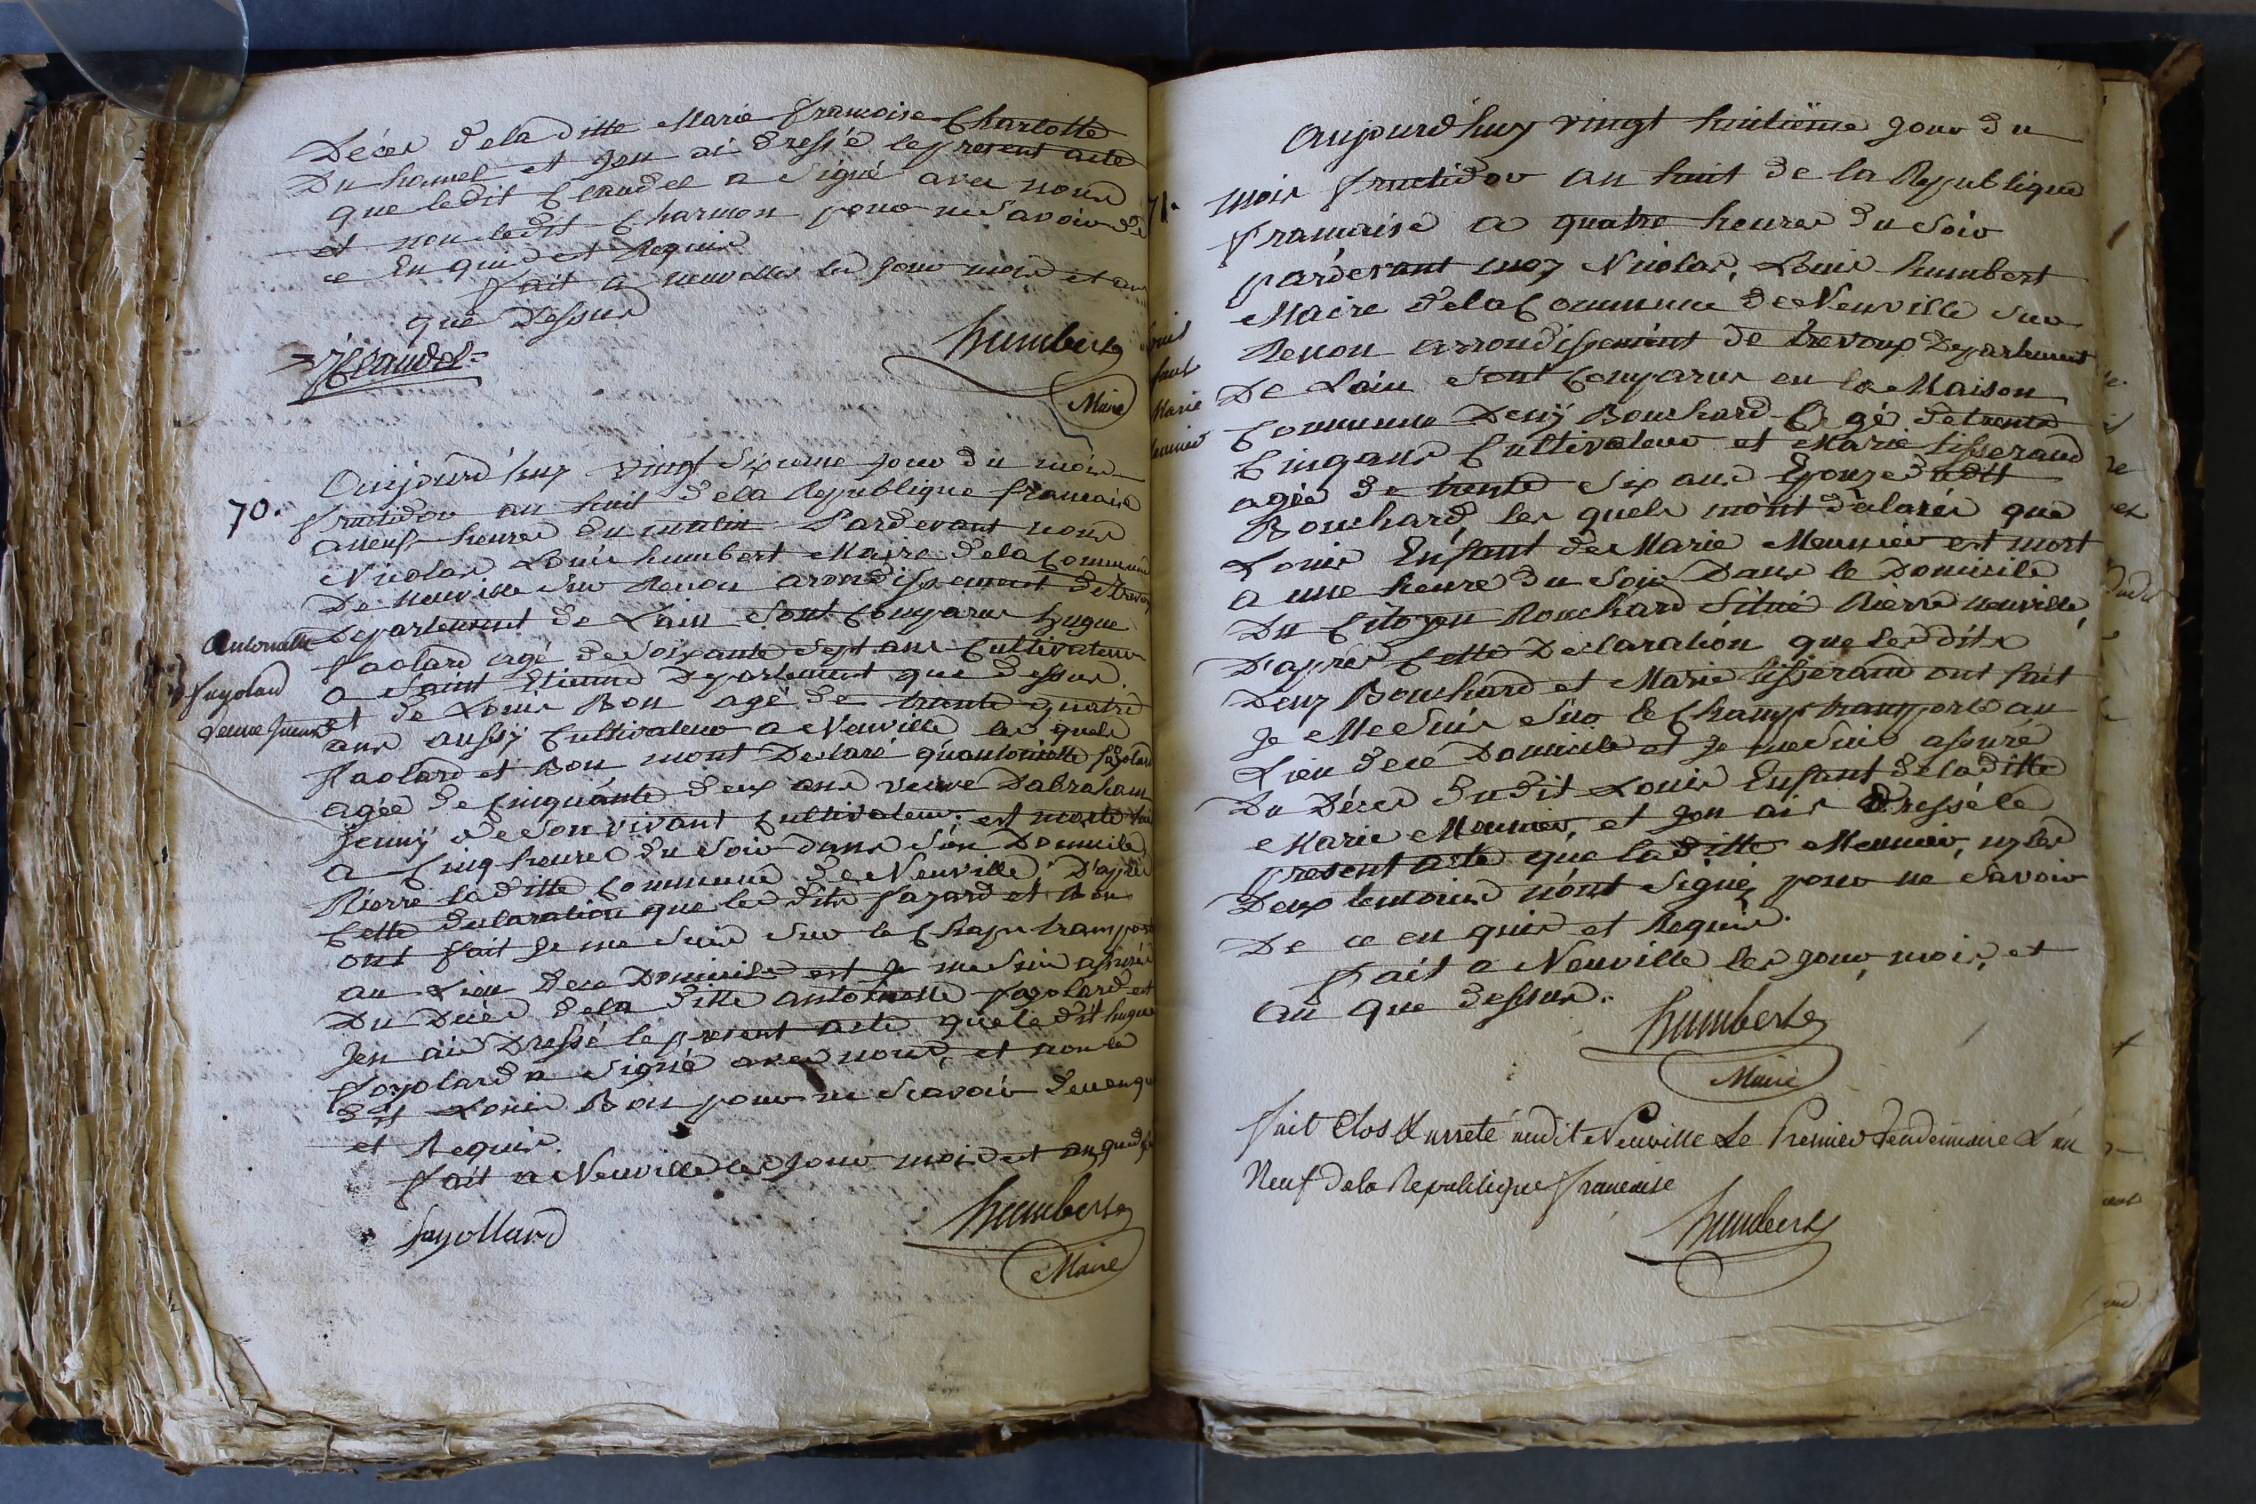 Décès de la ditte Marie françoise Charlotte
Duhamel et Jen ai dressé le present acte
que ledit Claudel a Signé avec nous
et non ledit Charmon pour ne Savoir de
ce En quis et Requis
fait a neuvelles les jour mois et an
que Dessus
Claudel
humbert
Maire
70.
Aujourd'huy vingt Sixieme jour du mois
fructidor an huit de la Republique francaise
a neuf heures du matin Pardevant nous
Nicolas Louis humbert Maire de la Commune
De neuville Sur Renon arondissement de trevoux
Departement de Lain Sont Comparus hugue
faolard agé de Soixante Sept ans Cultivateur
a Saint Etienne Departement que dessus
et de Louis Bon agé de trante quatre
ans aussy Cultivateur a Neuville les quels
faolard et Bon mont Declaré quantoinette fayolard
agée de Cinquante deux ans veuve Dabraham
Jenny de Son vivant Cultivateur est morte
a Cinq heures du Soir dans Son Domicile
Rierre la ditte Commune de Neuville D'aprés
Cette declaration que les dits fayard et Bon
ont fait Je me Suis Sur le Champ transporté
au Lieu de ce Domicile et Je me Suis assuré
Du Décés de la ditte antoinette fayolard et
Jen ais Dressé le present acte que le dit hugue
fayolard a Signé avec nous, et non le
dit Louis Bon pour ne Scavoir de ce enquis
et Requis.
fait a Neuville les jour mois et an que dessus
fayollard
humbert
Maire
Antoinette
fayolard
veuve Jenny
71.
Aujourd'huy vingt huitieme jour du
mois fructidor an huit de la Republique
francaise a quatre heures du Soir
pardevant moy Nicolas, Louis humbert
Maire de la Commune de Neuville Sur
Renon arrondissement de trevoux Departement
De Lain Sont Comparus en la Maison
Commune Deny Bouchard Agé de trente
Cinq ans Cultivateur et Marie tisserand
agée de trente Six ans Epouze dudit
Bouchard, les quels mont déclarés que
Louis Enfant de Marie Meunier est mort
a une heure du Soir Dans le Domicile
Du Citoyen Bouchard Situé Rierre neuville,
D'aprés Cette Declaration que les dits
Deny Bouchard et Marie tisserand ont fait
Je Me Suis Sur le Champ transporté au
Lieu de ce Domicile et Je me Suis assuré
Du Décés dudit Louis Enfant de la ditte
Marie Meunier, et Jen ais Dressé le
present acte que la ditte Meunier, ny les
Deux temoins n'ont Signé, pour ne Savoir
De ce en quis et Requis.
fait a Neuville les jour, mois, et
an que dessus.
humbert
Maire
fait Clos & arreté audit Neuville Le Premier Vendemiaire L'an
Neuf de la Republique francaise
humbert
Marie